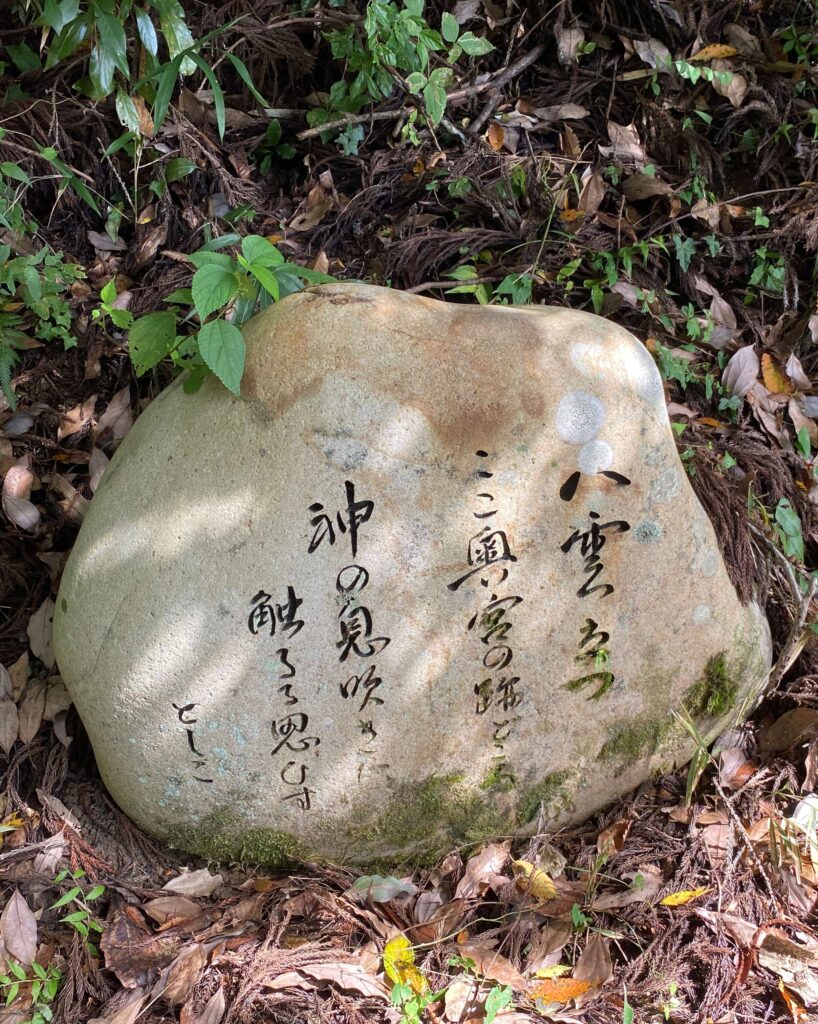 八雲たつ
ここ奥宮の跡どころ
神の息吹きに
触るる思ひす
としこ